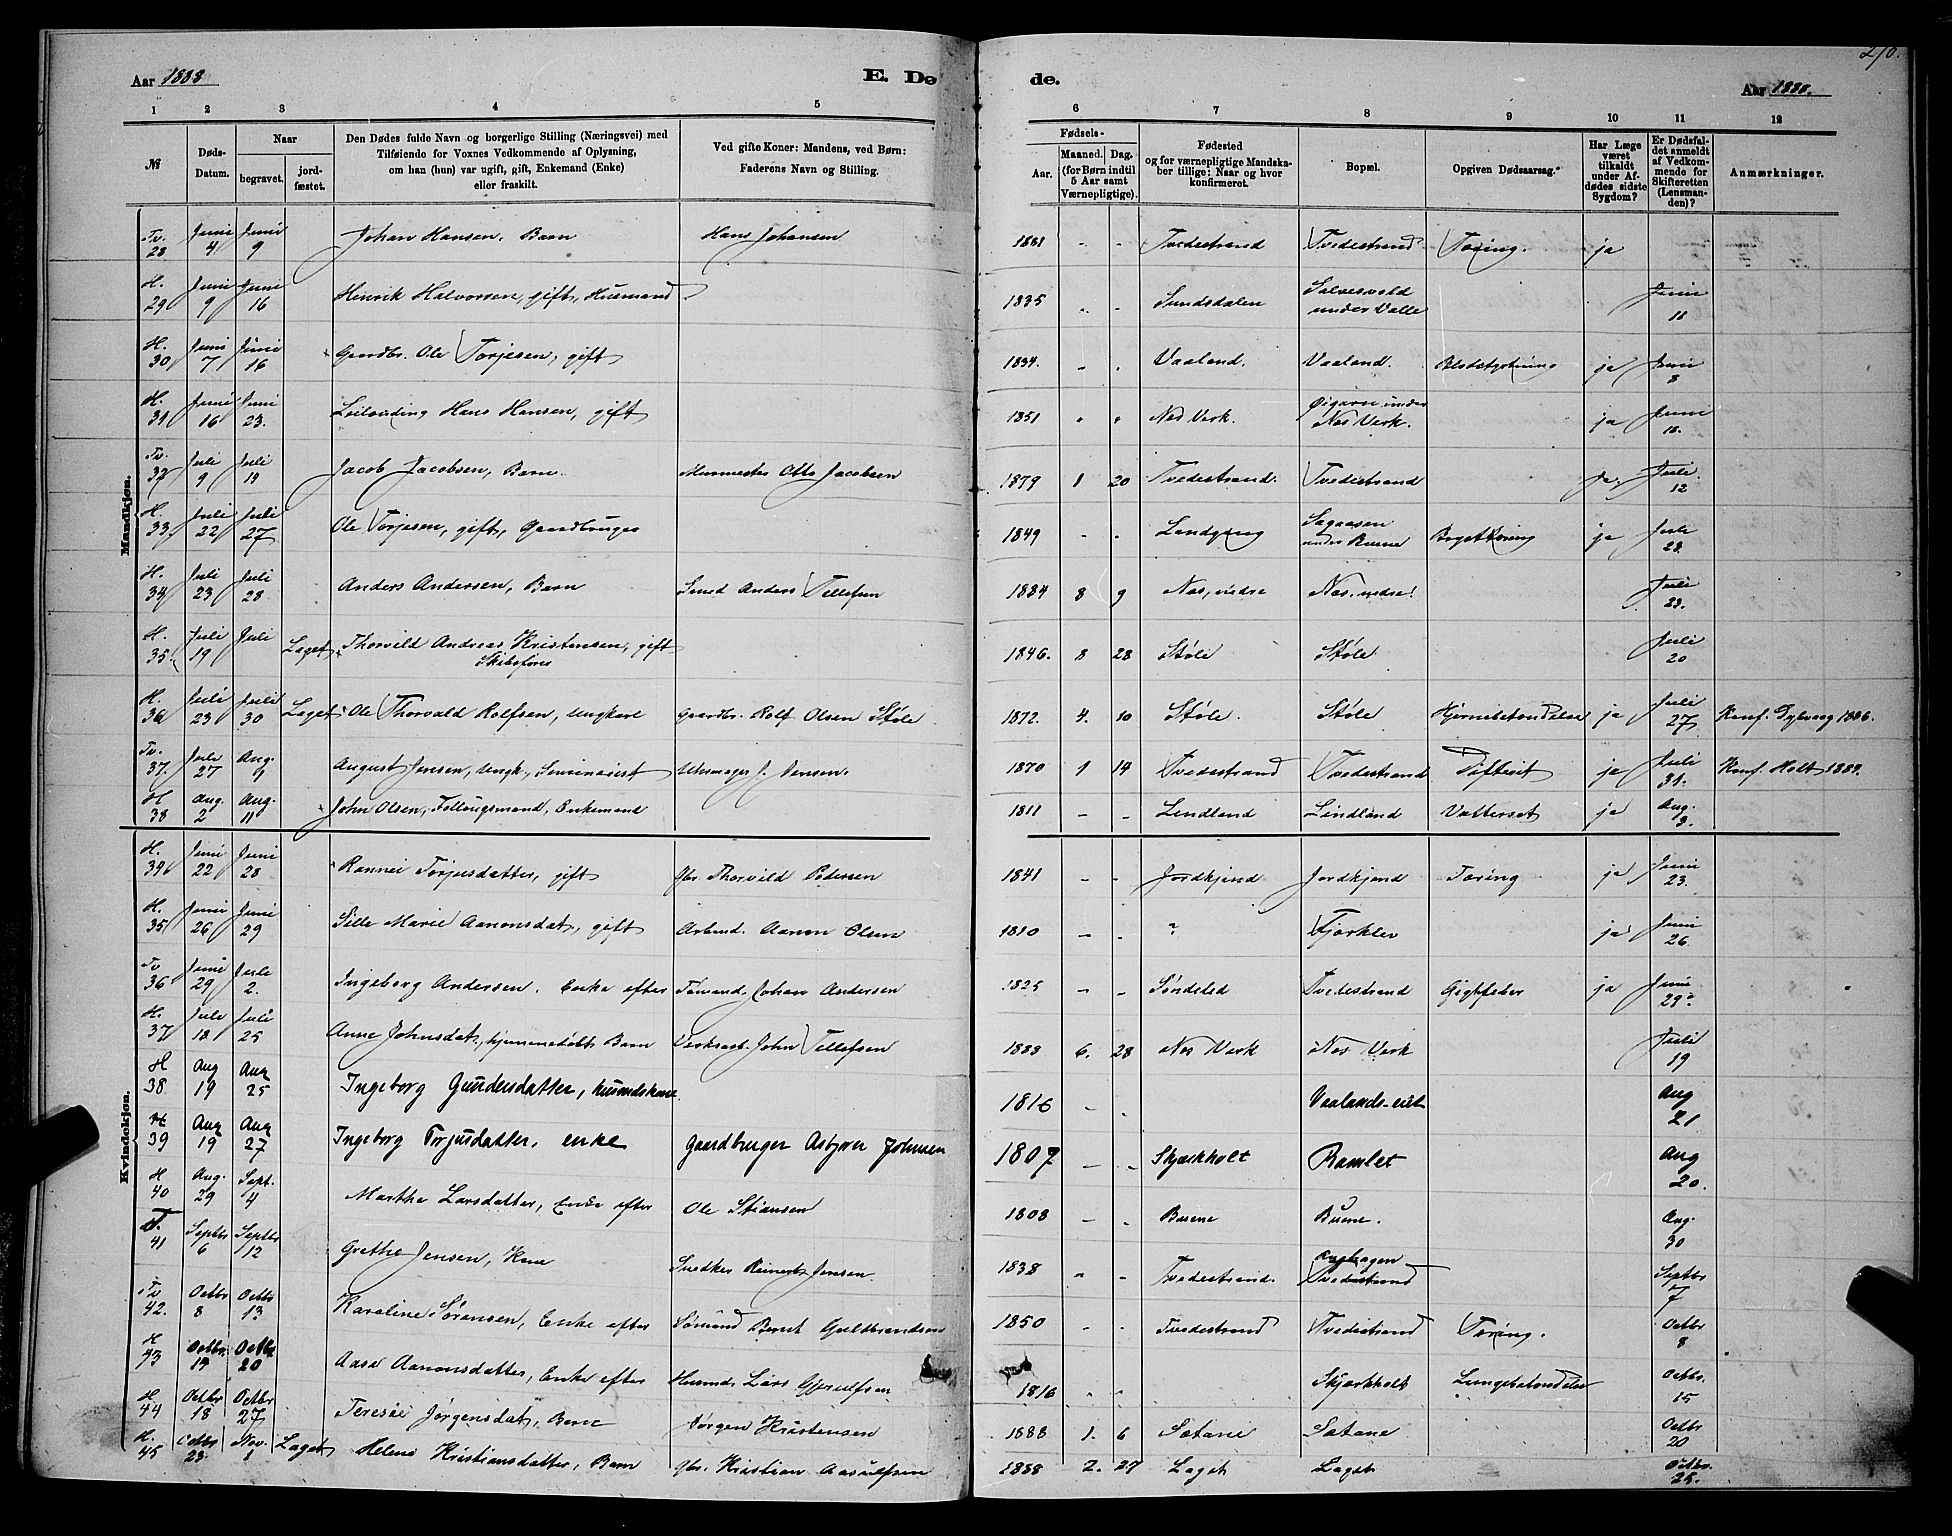 Aar 1888
E. Dø
de.
Aar 1888.
1 2 3 4 5 6 7 8 9 10 11 12
№ | Døds-Datum. | Naar begravet. | jord-fæstet. | Den Dødes fulde Navn og borgerlige Stilling (Næringsvei) med Tilføiende for Voxnes Vedkommende af Oplysning, om han (hun) var ugift, gift, Enkemand (Enke) eller fraskilt. | Ved gifte Koner: Mandens, ved Børn: Faderens Navn og Stilling. | Fødsels- Aar. | Maaned. | Dag. (for Børn indtil 5 Aar samt Værnepligtige). | Fødested og for værnepligtige Mandska-ber tillige: Naar og hvor konfirmeret. | Bopæl. | Opgiven Dødsaarsag.* | Har Læge været tilkaldt under Af-dødes sidste Sygdom? | Er Dødsfal-det anmeldt af Vedkom-mende for Skifteretten (Lensman-den)? | Anmærkninger.
Mandkjøn.
Tv. 28 | Juni 4 | Juni 9 | Johan Hansen, Barn | Hans Johansen | 1881 | - | - | Tvedestrand | Tvedestrand | Tæring. | ja
H. 29 | Juni 9 | Juni 16 | Henrik Halvorsen, gift, Husmand | 1835 | - | - | Sundsdalen | Salvesvold under Valle | Juni 11
H. 30 | Juni 7 | Juni 16 | Gaardbr. Ole Torjesen, gift | 1834. | - | - | Vaaland. | Vaaland. | Blodstyrtning | ja | Juni 8
H. 31 | Juni 16 | Juni 23. | Leilending Hans Hansen, gift | 1851 | " | " | Nes Verk. | under Nes Verk. | ja | Juni 18.
Tv. 32 | Juli 9 | Juli 19 | Jacob Jacobsen, Barn. | Murmester Otto Jacobsen | 1879 | 1 | 20 | Tvedestrand. | Tvedestrand | ja. | Juli 12
H. 33. | Juli 22 | Juli 27 | Ole Torjesen, gift, Gaardbruger | 1849 | - | - | Landgang | Sagaasen under Buene | Brysttæring | ja | Juli 23.
H. 34 | Juli 23 | Juli 28 | Anders Andersen, Barn | Smed Anders Tellefsen | 1884 | 8 | 9 | Nes, nedre | Nes, nedre | Juli 23.
H. 35. | Juli 19 | Juli | Laget | Thorvild Andreas Kristensen, gift Skibsfører | 1846. | 8 | 28 | Støle | Støle | Juli 20
H. 36 | Juli 23 | Juli 30 | Laget | Ole Thorvald Rolfsen, Ungkarl | Gaardbr. Rolf Olsen Støle | 1872. | 4. | 10 | Støle. | Støle | Hjernebetændelse | ja | Juli 27 | Konf. Dybvaag 1886.
Tv. 37. | Juli 27 | Aug. 1 | August Jensen, Ungk., Seminarist | Uhrmager J. Jensen. | 1870 | 1 | 14 | Tvedestrand | Tvedestrand | Difterit | ja | Juli 31. | Konf. Holt 1884.
H 38 | Aug. 2 | Aug. 11 | John Olsen, Føllaugsmand, Enkemand | 1811 | - | - | Lindland | Lindland | Vattersot | ja | Aug. 3.
Kvindekjøn.
H. 34 | Juni 22 | Juni 28 | Rannei Torjusdatter, gift | Gbr Thorvild Pedersen | 1841 | - | - | Jordkjend | Jordkjend | Tæring | ja | Juni 23.
H. 35 | Juni 26 | Juni 29 | Sille Marie Aanonsdat., gift | Arbmd. Aanon Olsen | 1810 | - | - | ? | Fjærkleo | ja | Juni 26
Tv 36 | Juni 29 | Juli 2. | Ingeborg Andersen, Enke efter | Tømmermd. Johan Andersen | 1825 | - | - | Søndeled | Tvedestrand | Gigtfeber | ja | Juni 29
H. 37 | Juli 18 | Juli 25 | Anne Johnsdat., hjemmedøbt Barn | Verksarb. John Tellefsen | 1888 | 6. | 28 | Nes Verk | Nes Verk | Juli 19
H 38 | Aug 19 | Aug 25 | Ingeborg Gundersdatter, husmdskone | 1816 | - | - | Vaalands-eiet | Aug 21
H 39 | Aug 19 | Aug 27 | Ingeborg Torjusdatter, enke | gaardbruger Asbjørn Johnsen | 1807 | - | - | Skjærkholt | Ramlet | Aug 20.
H 40 | Aug. 29 | Sept. 4 | Marthe Larsdatter, Enke efter | Ole Stiansen | 1808 | - | - | Buene | Buene. | Aug. 30
T. 41 | Septbr 6 | Septbr 12 | Grethe Jensen, Kone | Snedker Reinert Jensen | 1838 | " | - | Tvedestrand. | Tvedestrand | Septbr 7
Tv 42. | Octbr 8 | Octbr 13 | Karoline Sørensen, Enke efter | Sømand Bernt Guldbrandsen | 1850 | - | - | Tvedestrand | Tvedestrand | Tæring. | Octbr 8
H 43 | Octbr. 14 | Octbr 20 | Aase Aanonsdatter, Enke efter | Husmd. Lars Gjerulfsen | 1816 | " | " | Skjærkholt | Lungebetændelse | Octbr. 15
H 44 | Octbr 18 | Octbr 27 | Teresie Jørgensdat., Barn | Jørgen Kristensen | 1888 | 1. | 6 | Sætane | Sætane | Octbr 20
H. 45 | Octbr 23 | Nov. 1 | Laget | Helene Kristiansdatter, Barn | Gbr. Kristian Aasulfsen | 1888 | 2. | 29 | Laget | Laget | Octbr. 25.